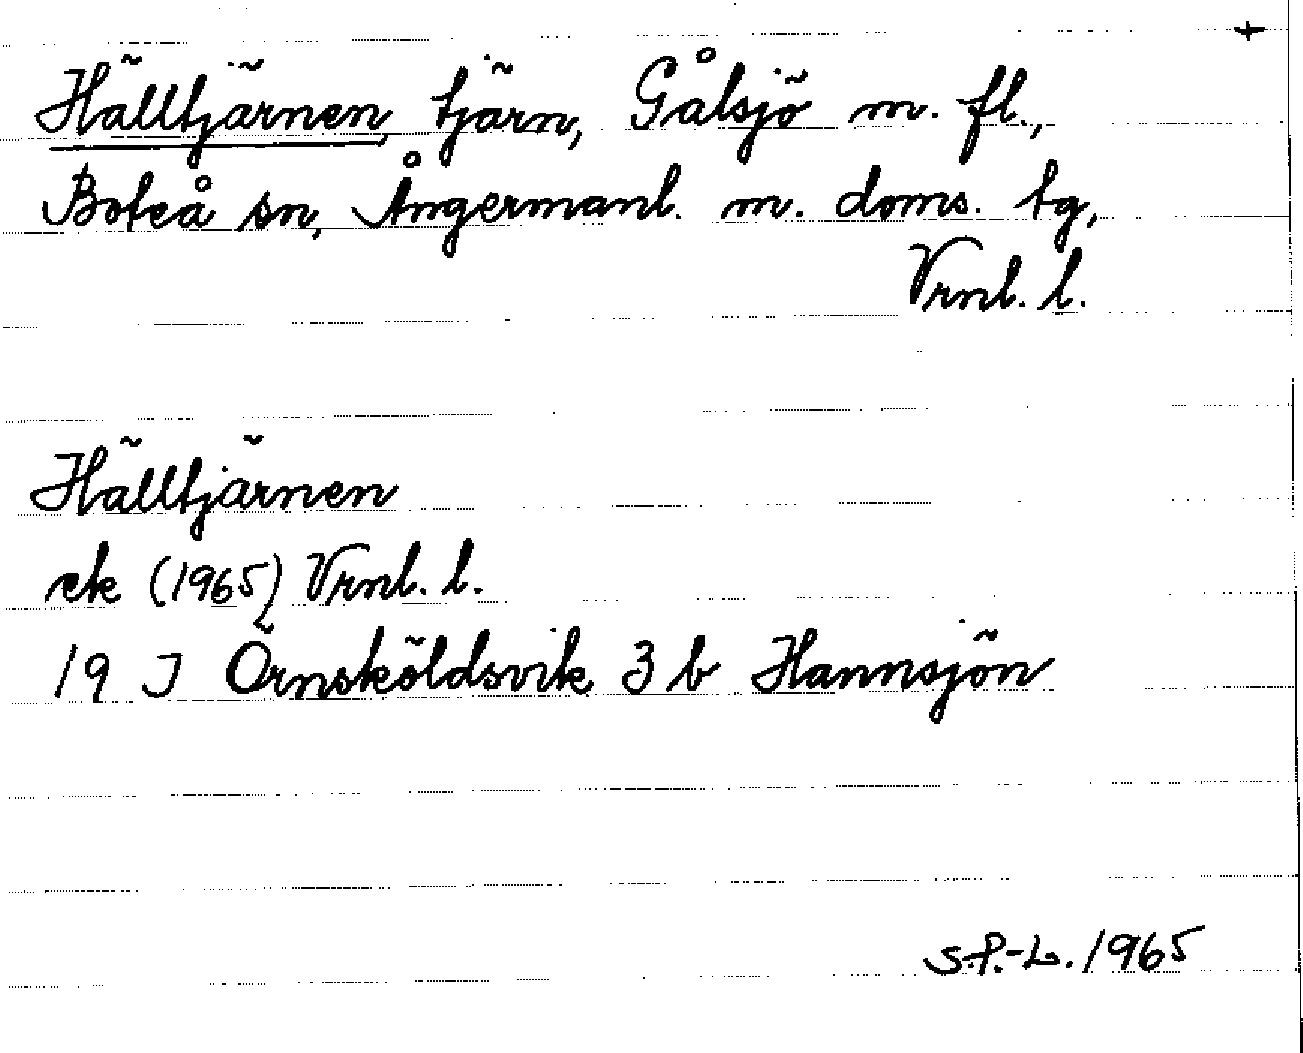 +
Hälltjärnen, tjärn, Gålsjö m. fl.,
Boteå sn, Ångermanl. m. doms. tg,
Vrnl. l.
Hälltjärnen
ek (1965) Vrnl. l.
19 J Örnsköldsvik 3 b Hannsjön
S.P.-L. 1965